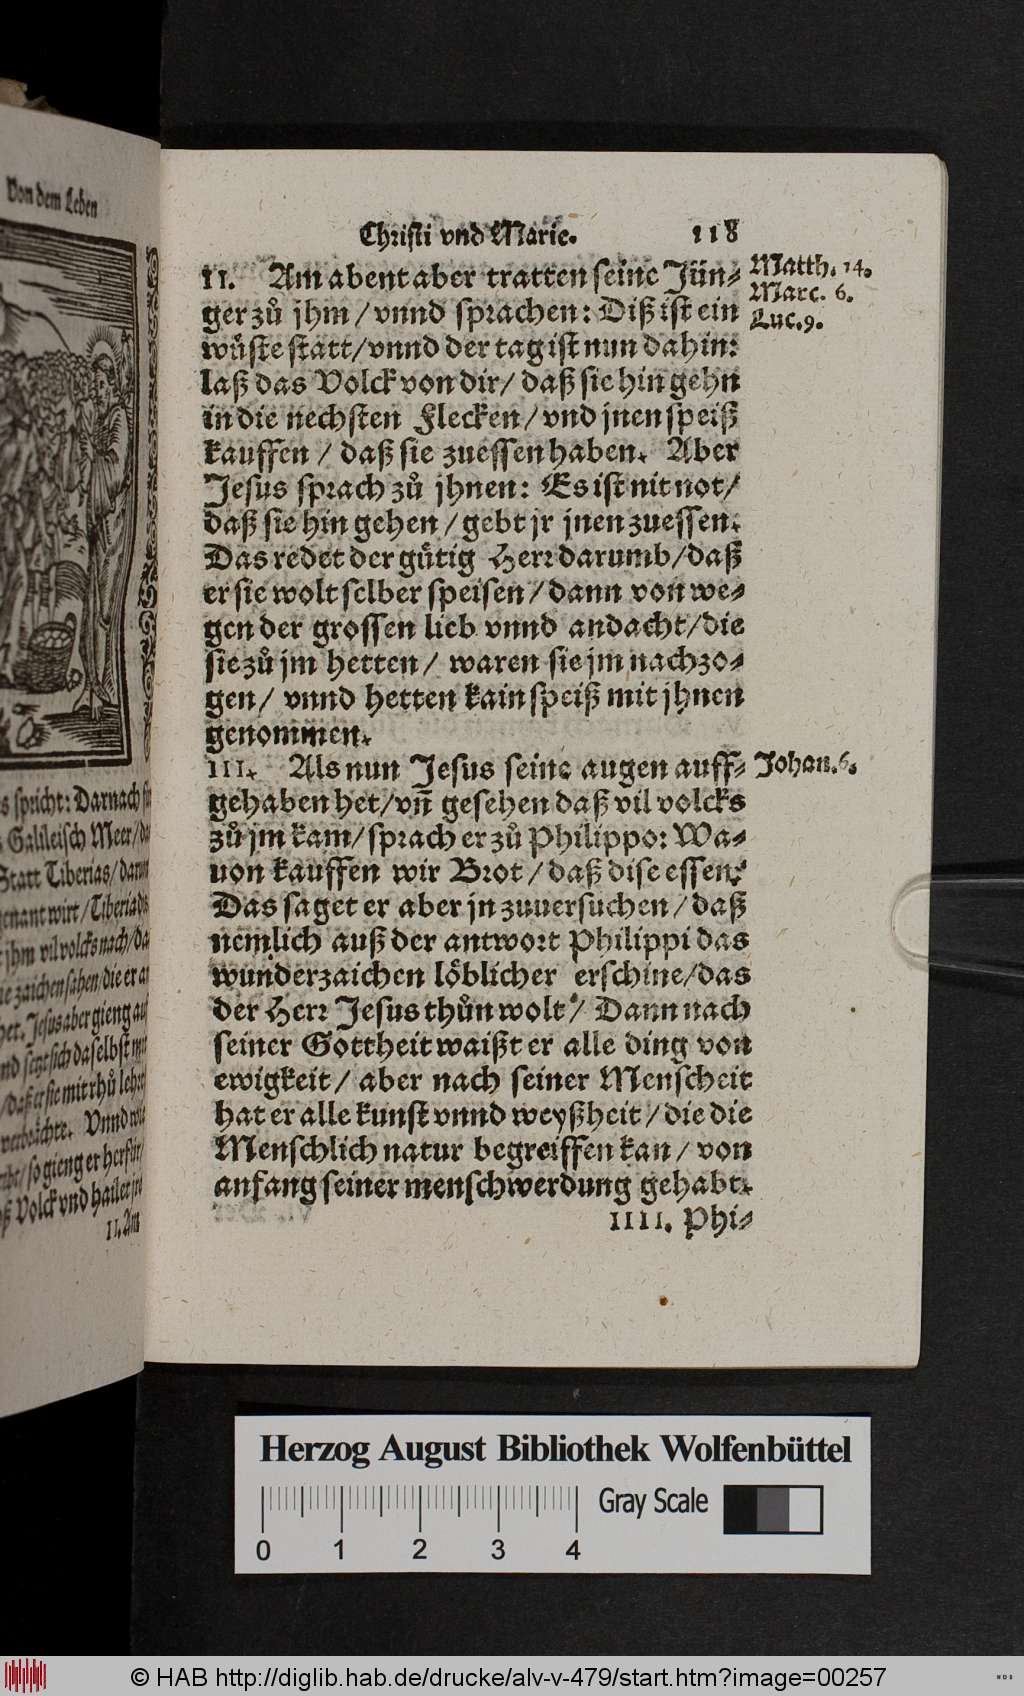 Von dem Leben
s spricht: Darnach
Galileisch Meer/
Statt Tiberias/
genant wirt/Tiberiadis
jhm vil volcks nach/
zaichen sahen/die er
het. Jesus aber gieng auf
nd setzt sich daselbst
/daß er sie mit rhů
verbrächte. Vnnd
so gieng er herfür/
Volck vnd hailet
II. Am
Christi vnd Marie. 118
II. Am abent aber tratten seine Jün⸗
ger zů jhm/vnnd sprachen: Diß ist ein
wüste statt/vnnd der tag ist nun dahin:
laß das Volck von dir/ daß sie hin gehn
in die nechsten Flecken/vnd jnen speiß
kauffen / daß sie zuessen haben. Aber
Jesus sprach zů jhnen: Es ist nit not/
daß sie hin gehen/gebt jr jnen zuessen.
Das redet der gütig Herr darumb/daß
er sie wolt selber speisen/dann von we⸗
gen der grossen lieb vnnd andacht/die
sie zů jm hetten/ waren sie jm nachzo⸗
gen/ vnnd hetten kain speiß mit jhnen
genommen.
III. Als nun Jesus seine augen auff⸗
gehaben het/vñ gesehen daß vil volcks
zů jm kam/sprach er zů Philippo: Wa⸗
uon kauffen wir Brot/daß dise essen?
Das saget er aber jn zuuersuchen/daß
nemlich auß der antwort Philippi das
wunderzaichen löblicher erschine/das
der Herr Jesus thůn wolt/ Dann nach
seiner Gottheit waißt er alle ding von
ewigkeit/ aber nach seiner Menscheit
hat er alle kunst vnnd weyßheit/die die
Menschlich natur begreiffen kan/ von
anfang seiner menschwerdung gehabt.
IIII. Phi⸗
Matth. 14.
Marc. 6.
Luc. 9.
Johan. 6.
Herzog August Bibliothek Wolfenbüttel
Gray Scale
0 1 2 3 4
© HAB http://diglib.hab.de/drucke/alv-v-479/start.htm?image=00257